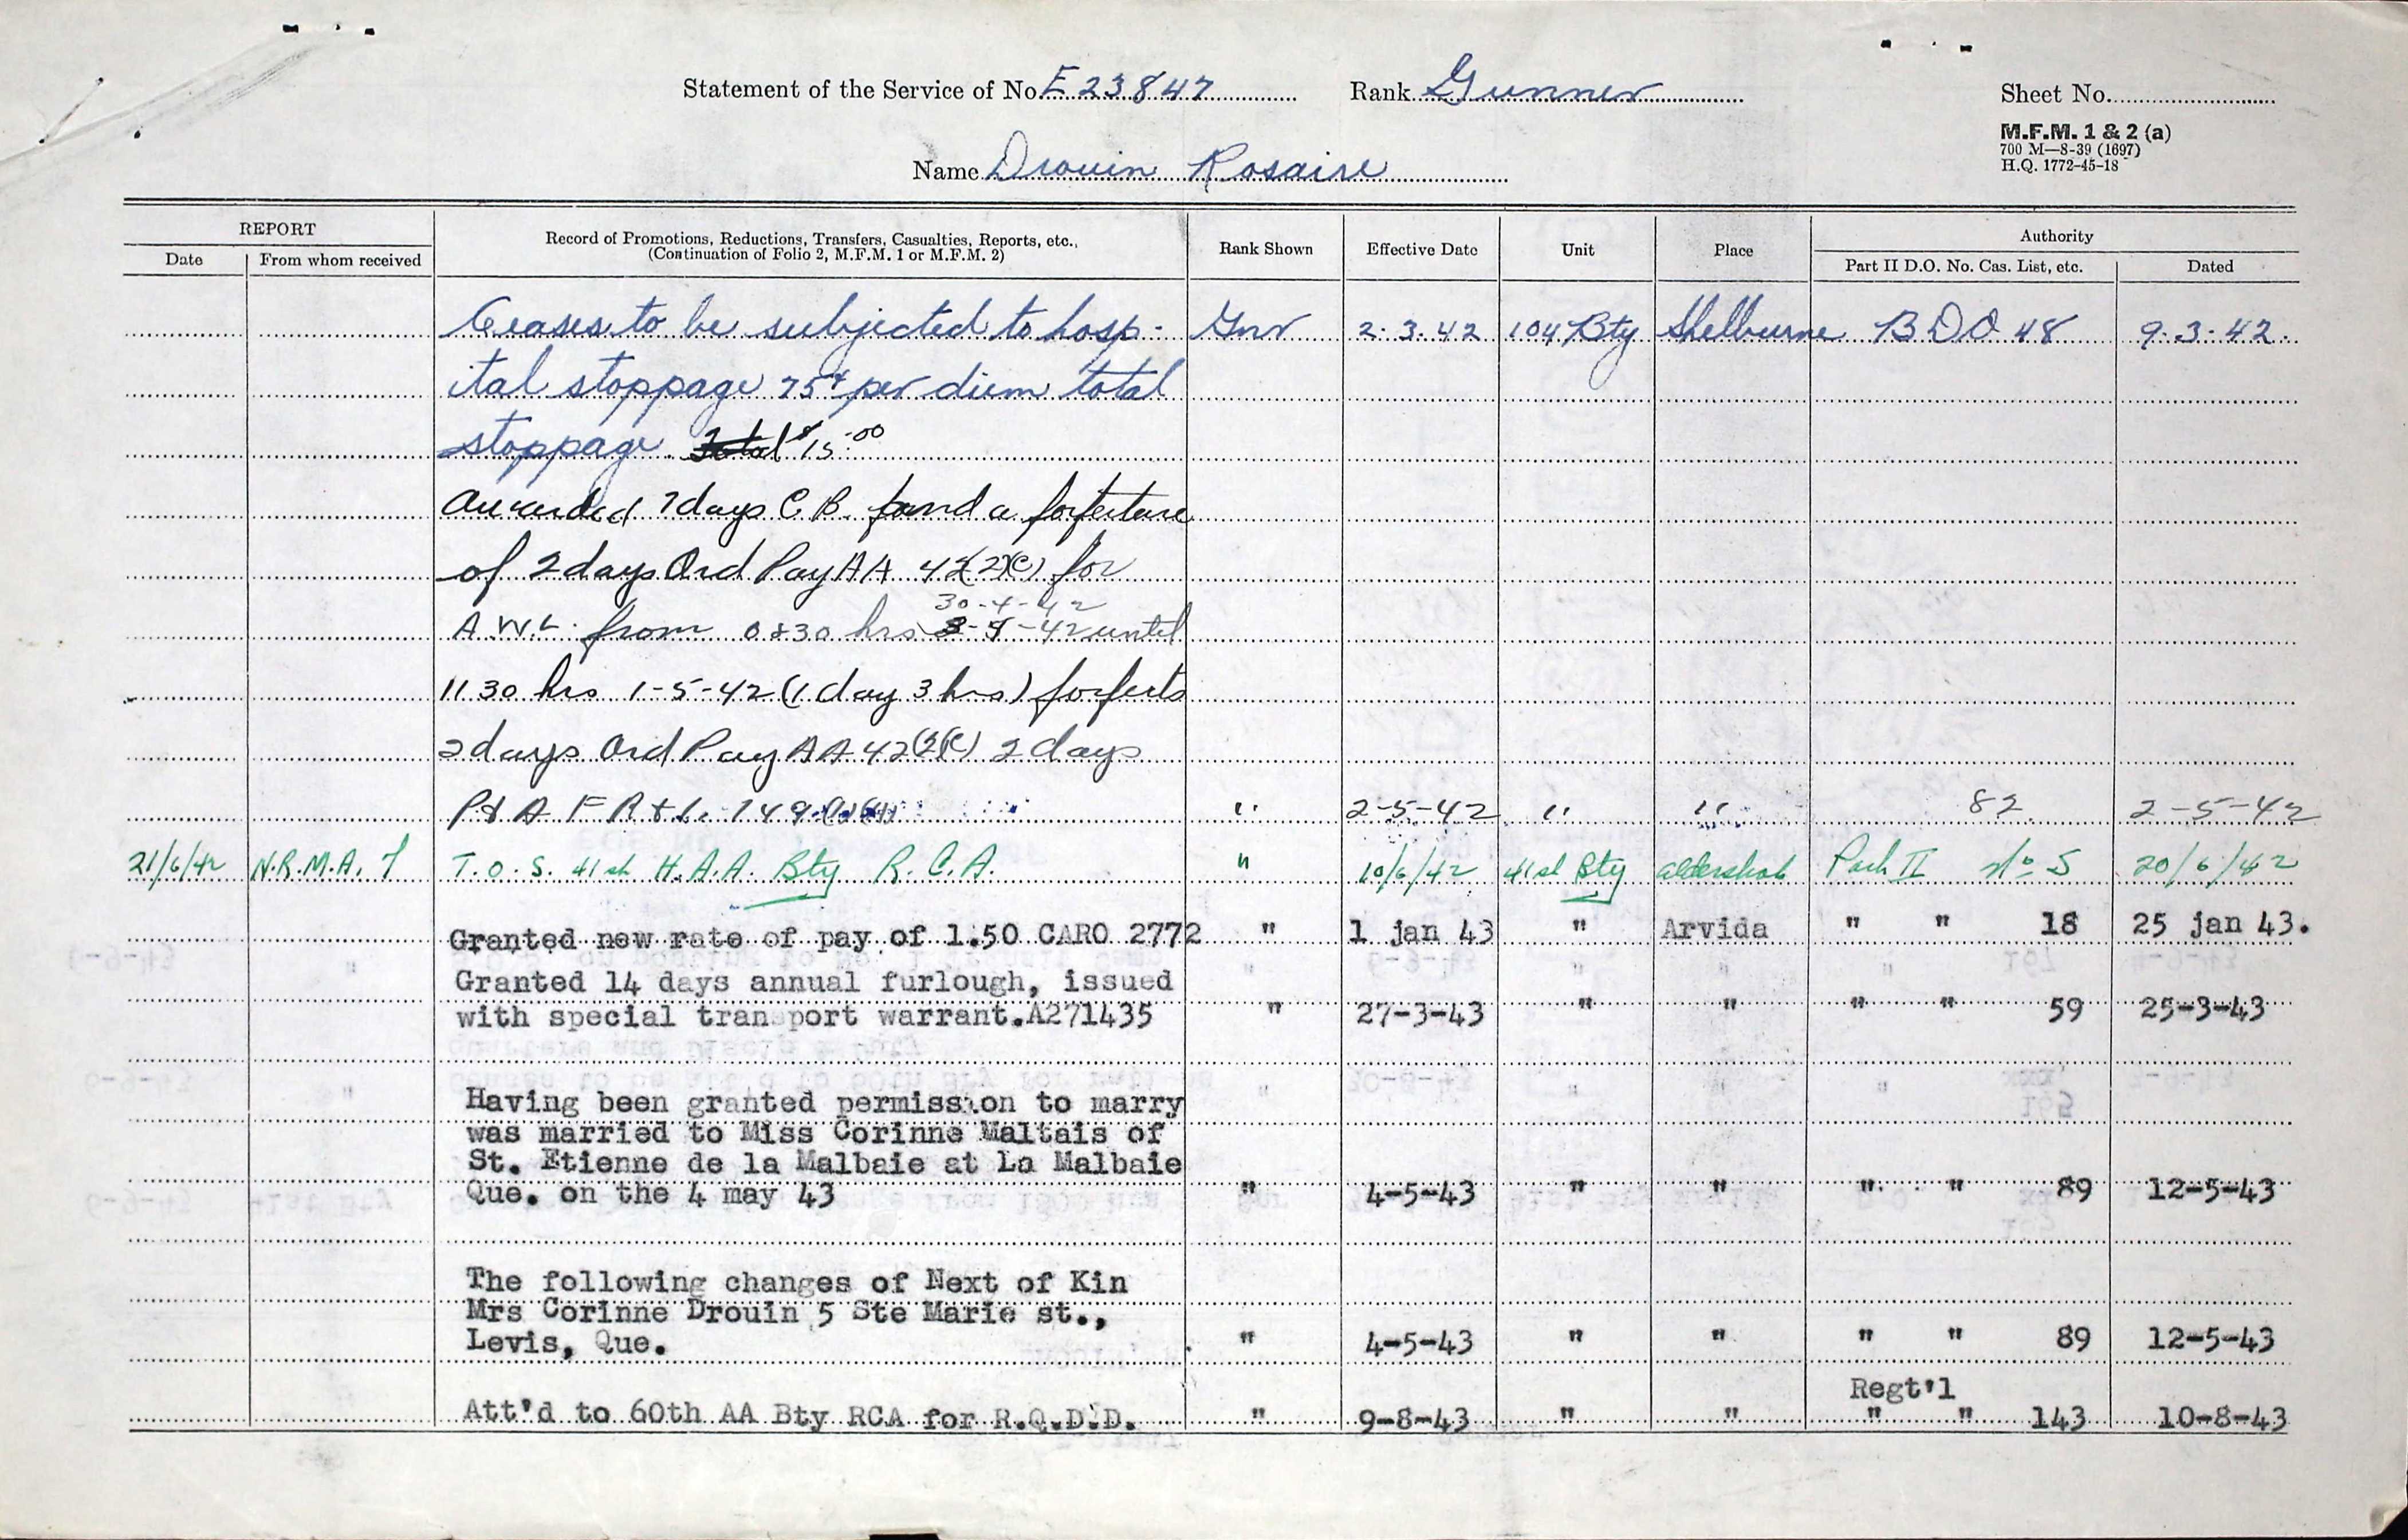 Statement of the Service of No E 23847 Rank Gunner Sheet No.
M.F.M. 1 & 2 (a)
700 M—8-39 (1697)
H.Q. 1772-45-18
Name Drouin Rosaire
REPORT Record of Promotions, Reductions, Transfers, Casualties, Reports, etc., Rank Shown Effective Date Unit Place Authority
Date From whom received (Continuation of Folio 2, M.F.M. 1 or M.F.M. 2) Part II D.O. No. Cas. List, etc. Dated
Ceases to be subjected to hosp- Gnr 2.3.42 104 Bty Shelburne B D O 48 9.3.42.
ital stoppage 75¢ per diem total
stoppage. $15.00
Awarded 7 days C.B. and a forfeture
of 2 days Ord Pay AA 42(2)(C) for
30-4-42
A.W.L. from 0830 hrs until
1130 hrs 1-5-42 (1 day 3 hrs) forfeits
2 days Ord Pay AA 42(2)(C) 2 days
P & A F R & I. 149 " 2-5-42 " " 82 2-5-42
21/6/42 N.R.M.A. T.O.S. 41st H.A.A. Bty R.C.A. " 10/6/42 41st Bty Aldershot Part II No 5 20/6/42
Granted new rate of pay of 1.50 CARO 2772 " 1 jan 43 " Arvida " " 18 25 jan 43.
Granted 14 days annual furlough, issued
with special transport warrant.A271435 " 27-3-43 " " " " 59 25-3-43
Having been granted permission to marry
was married to Miss Corinne Maltais of
St. Etienne de la Malbaie at La Malbaie
Que. on the 4 may 43 " 4-5-43 " " " " 89 12-5-43
The following changes of Next of Kin
Mrs Corinne Drouin 5 Ste Marie st.,
Levis, Que. " 4-5-43 " " " " 89 12-5-43
Regt'l
Att'd to 60th AA Bty RCA for R.Q.D.D. " 9-8-43 " " " " 143 10-8-43